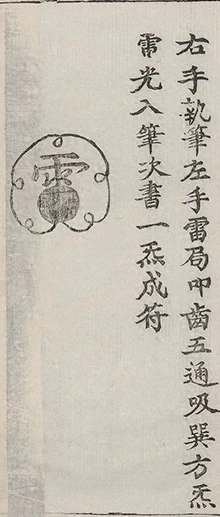 右手執筆左手雷局叩齒五通吸巽方炁
雷光入筆次書一炁成符
雷